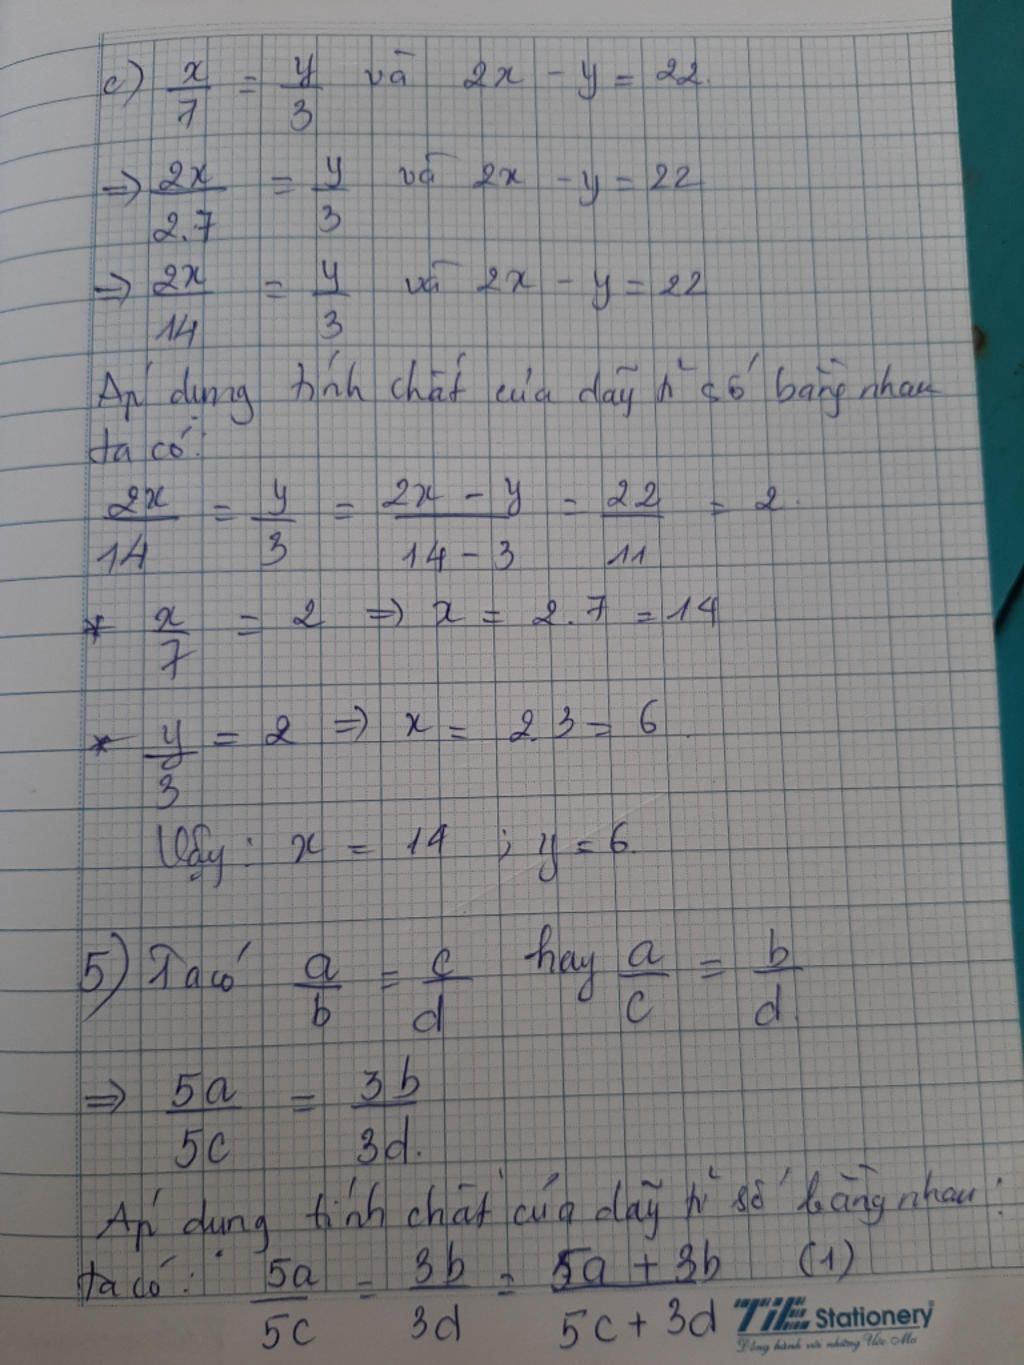 c) x/7 = y/3 và 2x - y = 22.
=> 2x/2.7 = y/3 và 2x - y = 22
=> 2x/14 = y/3 và 2x - y = 22
Áp dụng tính chất của dãy tỉ số bằng nhau
ta có:
2x/14 = y/3 = (2x - y)/(14 - 3) = 22/11 = 2.
* x/7 = 2 => x = 2.7 = 14
* y/3 = 2 => x = 2.3 = 6.
Vậy: x = 14 ; y = 6.
5) Ta có a/b = c/d hay a/c = b/d.
=> 5a/5c = 3b/3d.
Áp dung tính chất của dãy tỉ số bằng nhau:
ta có: 5a/5c = 3b/3d = (5a + 3b)/(5c + 3d) (1)
TiE Stationery
Đồng hành với những Ước Mơ